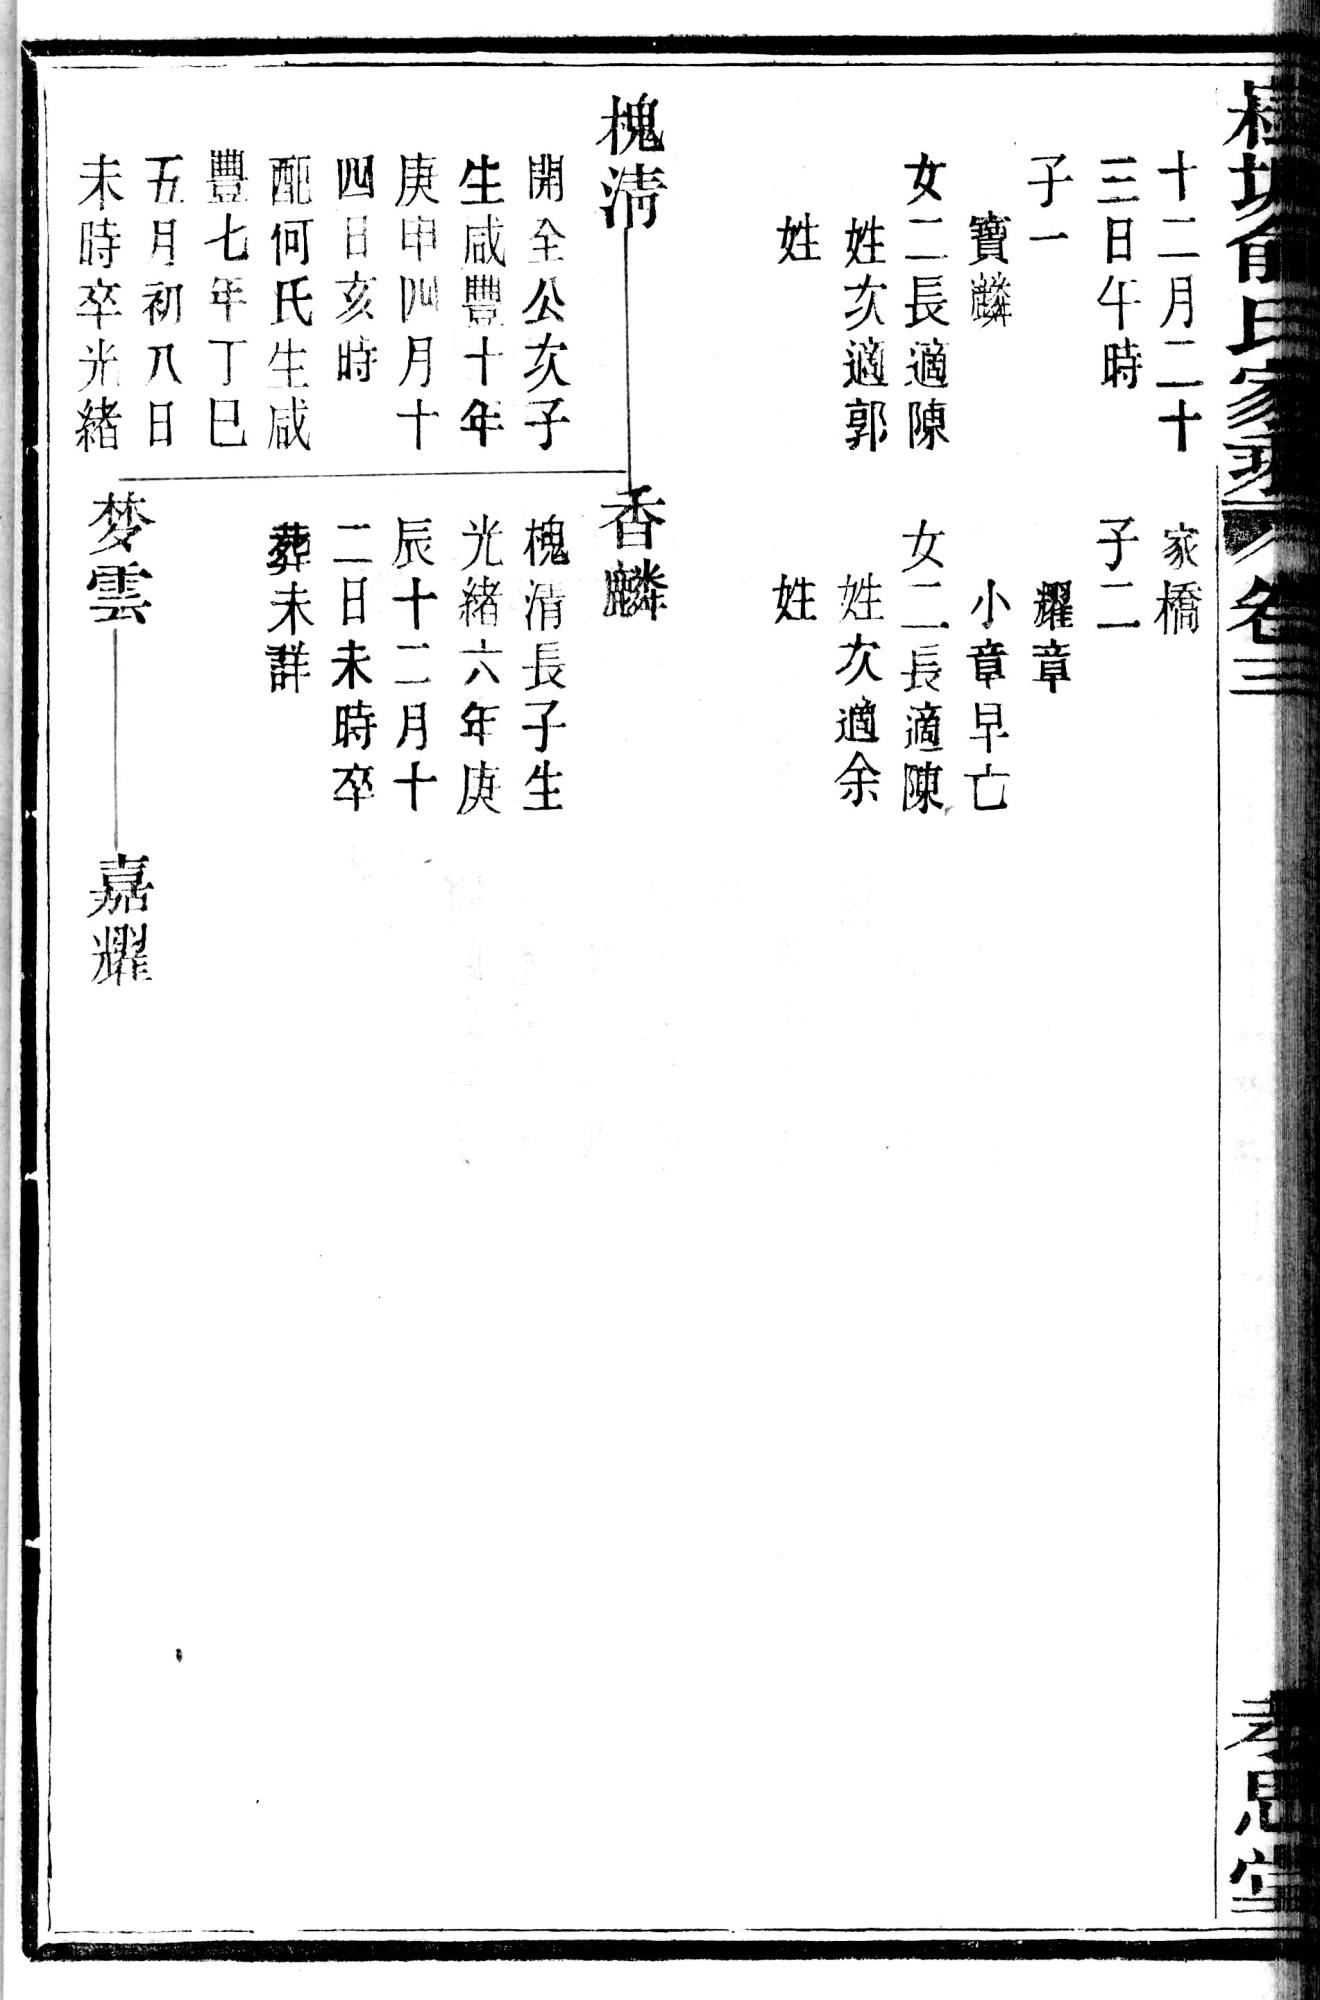 俞氏家乘
卷三
孝思堂
十二月二十
三日午時
子一
寶麟
女二長適陳
姓次適郭
姓
家橋
子二
耀章
小章早亡
女二長適陳
姓次適余
姓
槐淸
開全公次子
生咸豐十年
庚申四月十
四日亥時
配何氏生咸
豐七年丁巳
五月初八日
未時卒光緖
香麟
槐清長子生
光緒六年庚
辰十二月十
二日未時卒
葬未詳
梦雲
嘉耀